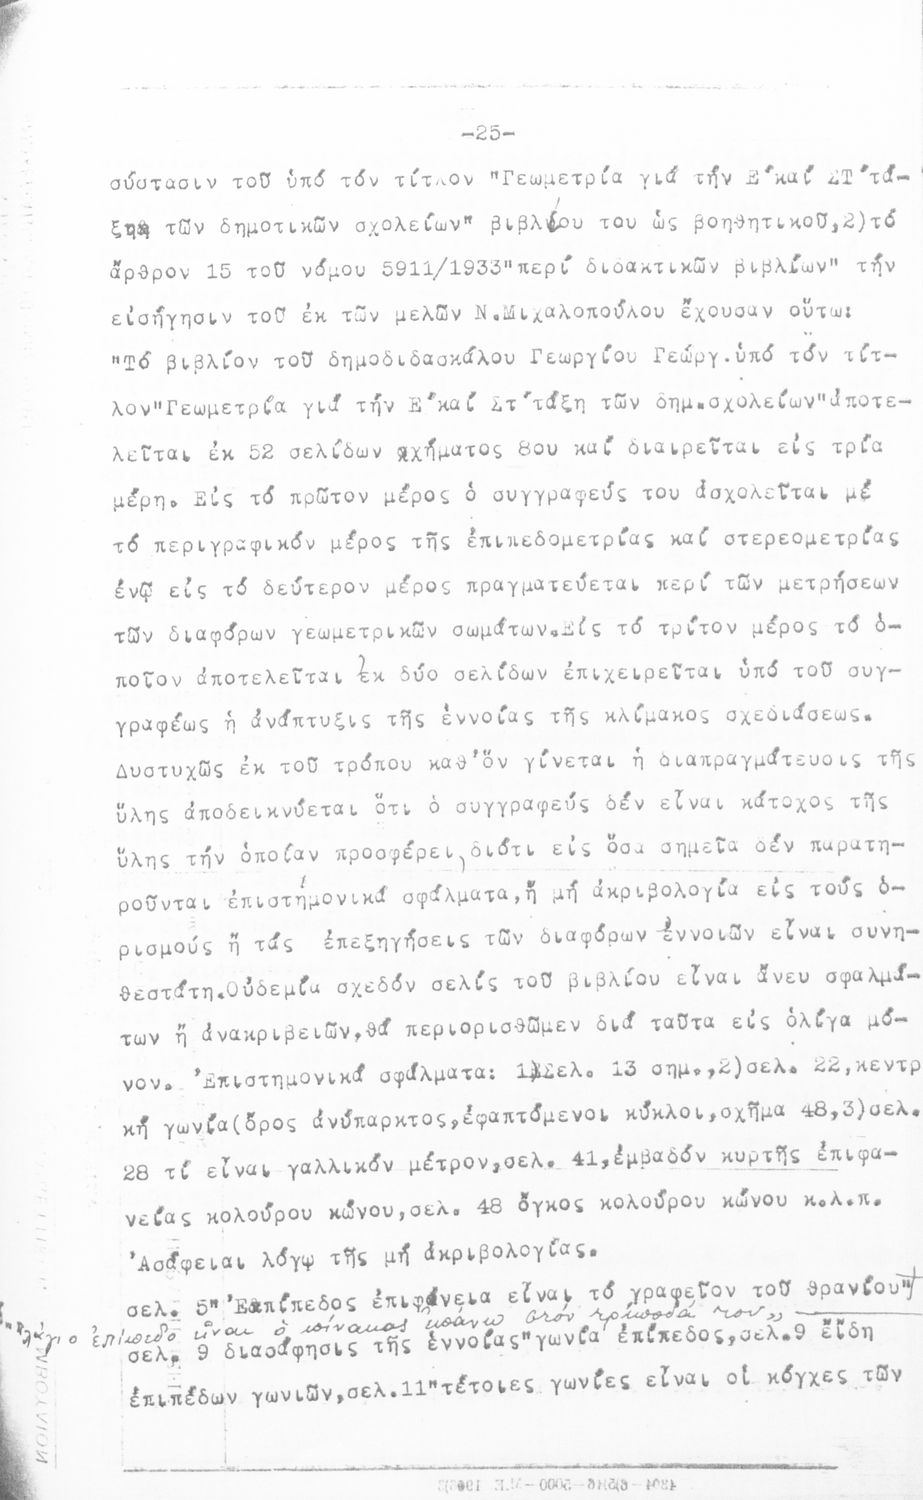 -25-
σύστασιν τοῦ ὑπό τόν τίτλον "Γεωμετρία γιά τήν Ε΄καί ΣΤ΄τά-
ξη τῶν δημοτικῶν σχολείων" βιβλίου του ὡς βοηθητικοῦ,2)τό
ἄρθρον 15 τοῦ νόμου 5911/1933"περί διδακτικῶν βιβλίων" τήν
εἰσήγησιν τοῦ ἐκ τῶν μελῶν Ν.Μιχαλοπούλου ἔχουσαν οὕτω:
"Τό βιβλίον τοῦ δημοδιδασκάλου Γεωργίου Γεώργ.ὑπό τόν τίτ-
λον"Γεωμετρία γιά τήν Ε΄καί Στ΄τάξη τῶν δημ.σχολείων"ἀποτε-
λεῖται ἐκ 52 σελίδων σχήματος 8ου καί διαιρεῖται εἰς τρία
μέρη. Εἰς τό πρῶτον μέρος ὁ συγγραφεύς του ἀσχολεῖται μέ
τό περιγραφικόν μέρος τῆς ἐπιπεδομετρίας καί στερεομετρίας
ἐνῷ εἰς τό δεύτερον μέρος πραγματεύεται περί τῶν μετρήσεων
τῶν διαφόρων γεωμετρικῶν σωμάτων.Εἰς τό τρίτον μέρος τό ὁ-
ποῖον ἀποτελεῖται ἐκ δύο σελίδων ἐπιχειρεῖται ὑπό τοῦ συγ-
γραφέως ἡ ἀνάπτυξις τῆς ἐννοίας τῆς κλίμακος σχεδιάσεως.
Δυστυχῶς ἐκ τοῦ τρόπου καθ'ὅν γίνεται ἡ διαπραγμάτευσις τῆς
ὕλης ἀποδεικνύεται ὅτι ὁ συγγραφεύς δέν εἶναι κάτοχος τῆς
ὕλης τήν ὁποίαν προσφέρει,διότι εἰς ὅσα σημεῖα δέν παρατη-
ροῦνται ἐπιστημονικά σφάλματα,ἤ μή ἀκριβολογία εἰς τούς ὁ-
ρισμούς ἤ τάς ἐπεξηγήσεις τῶν διαφόρων ἐννοιῶν εἶναι συνη-
θεστάτη.Οὐδεμία σχεδόν σελίς τοῦ βιβλίου εἶναι ἄνευ σφαλμά-
των ἤ ἀνακριβειῶν,θά περιορισθῶμεν διά ταῦτα εἰς ὀλίγα μό-
νον. Ἐπιστημονικά σφάλματα: 1)Σελ. 13 σημ.,2)σελ. 22,κεντρ
κή γωνία(ὅρος ἀνύπαρκτος,ἐφαπτόμενοι κύκλοι,σχῆμα 48,3)σελ.
28 τί εἶναι γαλλικόν μέτρον,σελ. 41,ἐμβαδόν κυρτῆς ἐπιφα-
νείας κολούρου κώνου,σελ. 48 ὄγκος κολούρου κώνου κ.λ.π.
Ἀσάφειαι λόγῳ τῆς μή ἀκριβολογίας.
σελ. 5" Ἐπίπεδος ἐπιφάνεια εἶναι τό γραφεῖον τοῦ θρανίου"
"πλάγιο ἐπίπεδο εἶναι ὁ πίνακας ἐπάνω στόν τρίποδά του"
σελ. 9 διασάφησις τῆς ἐννοίας"γωνία ἐπίπεδος,σελ.9 εἴδη
ἐπιπέδων γωνιῶν,σελ.11"τέτοιες γωνίες εἶναι οἱ κόγχες τῶν